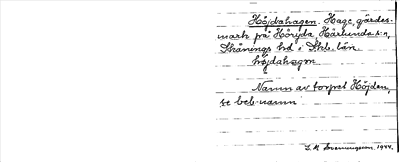 Höjdahagen. Hage, gärdes-
mark på Höryda Härlunda s:n,
Skånings hd i Skbs. län
höjdahagen
Namn av torpet Höjden,
se beb.namn
S. M. Svenungsson 1944.